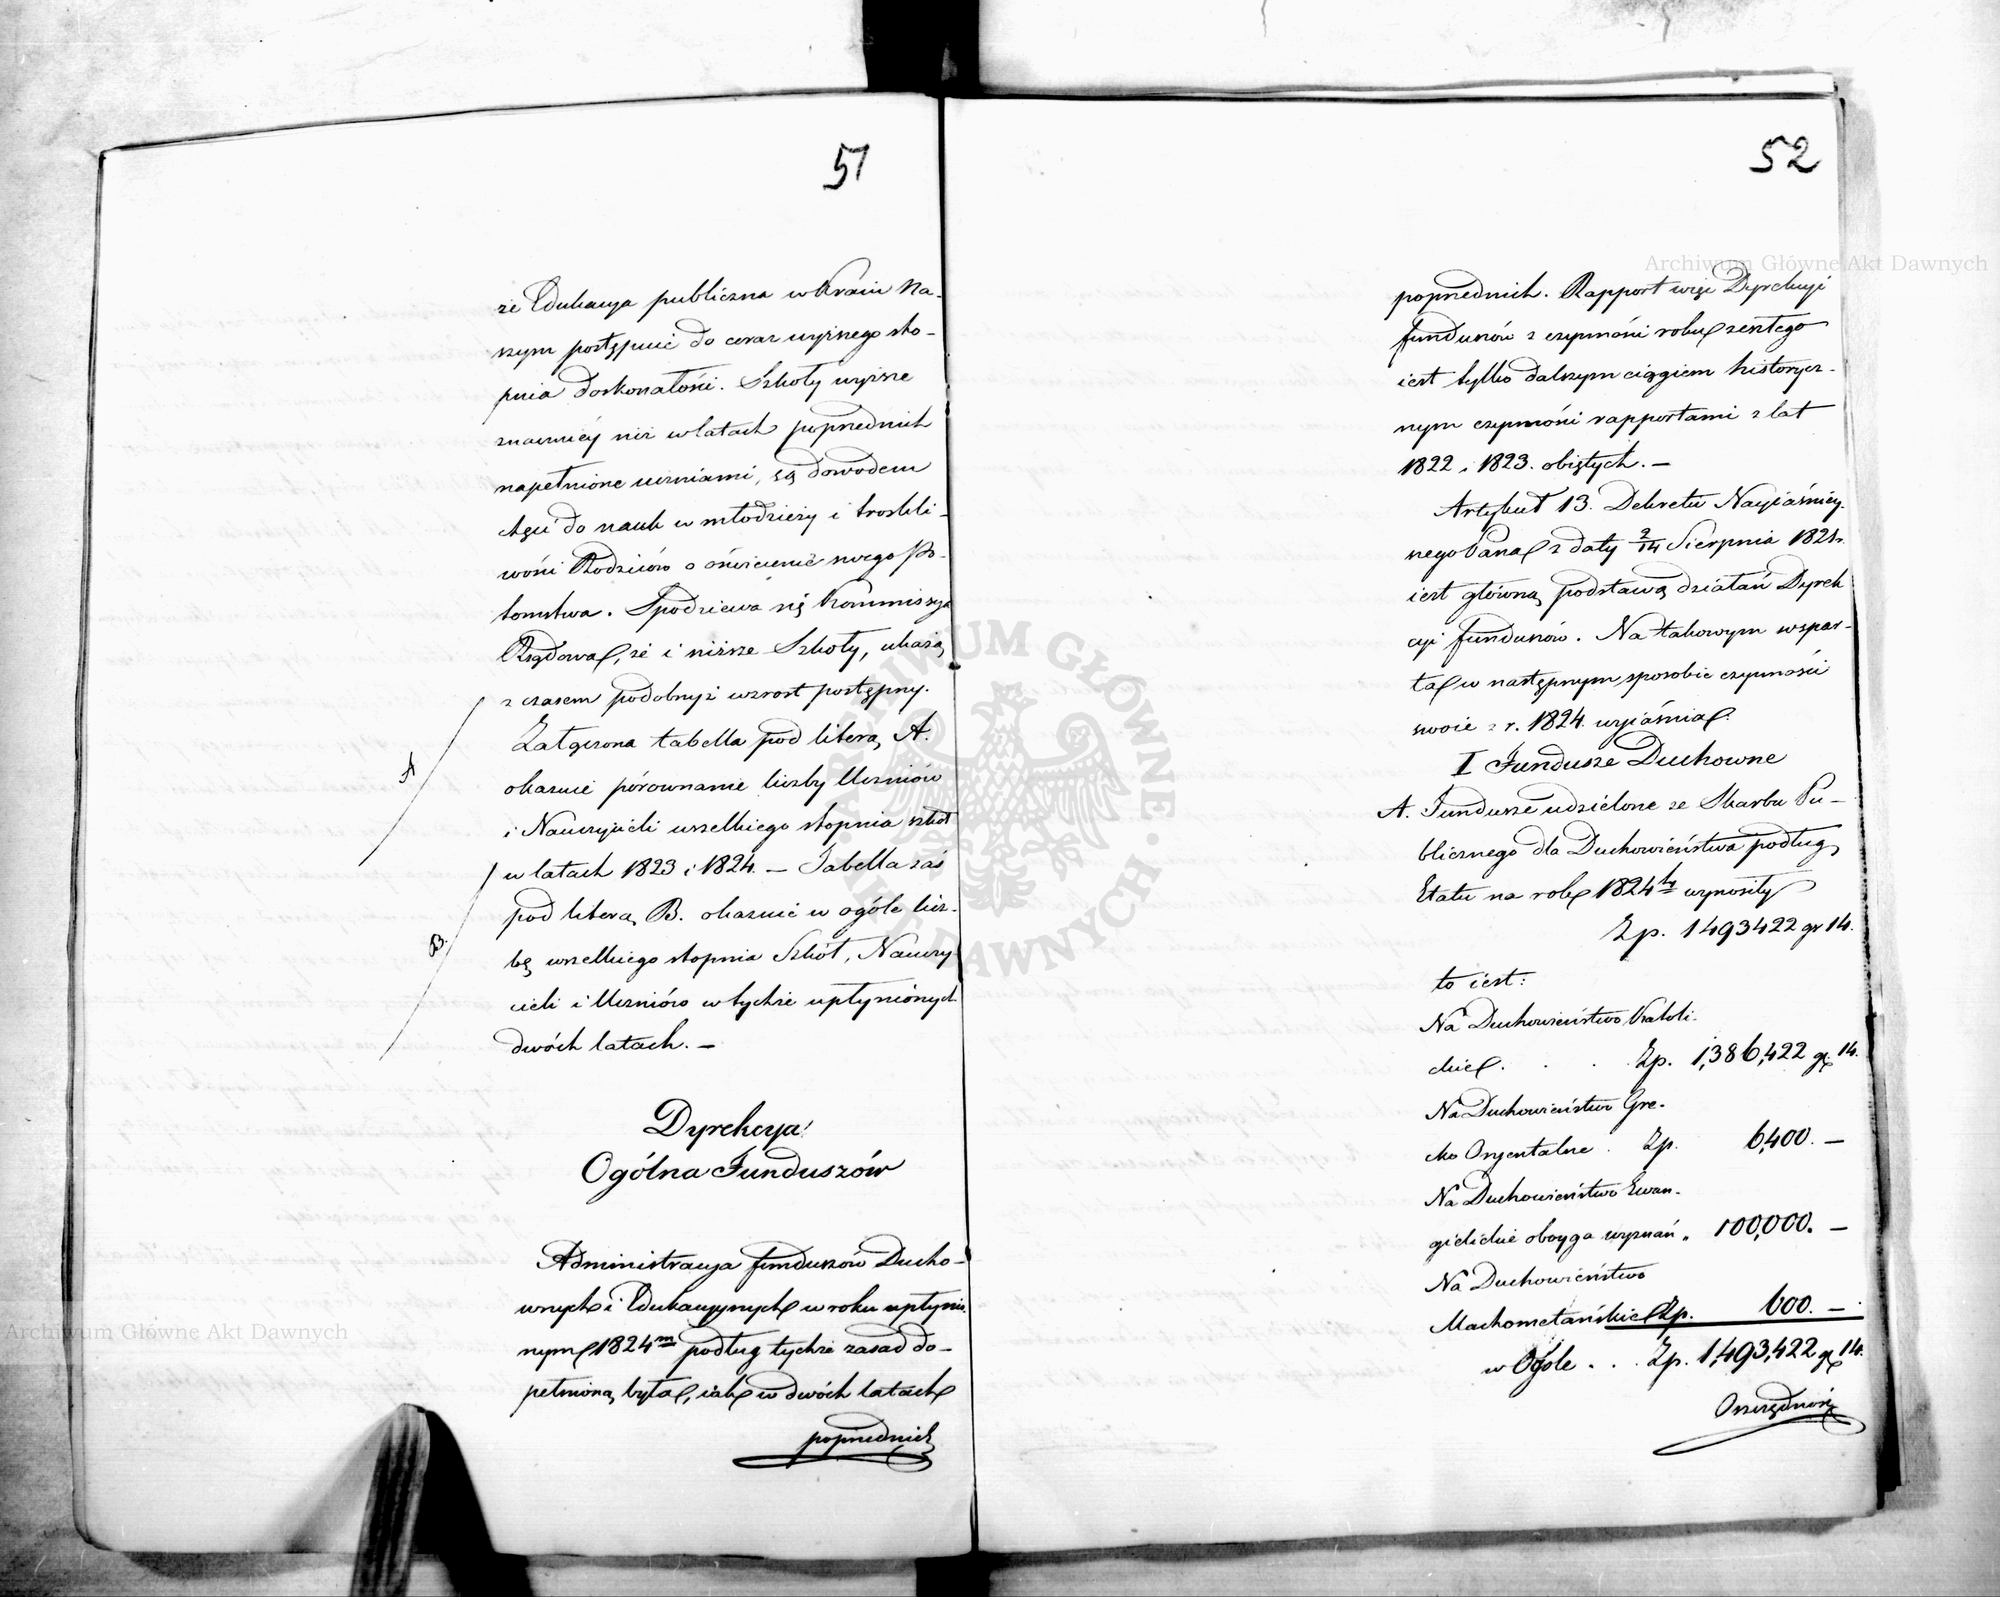 51
że Edukacya publiczna w Kraiu na-
szym postępuie do coraz wyższego sto-
pnia doskonałości. Szkoły wyższe
znaczniéy niż w latach poprzednich
napełnione uczniami, są dowodem
chęci do nauk w młodzieży i troskli-
wości Rodziców o oświecenie swego Po-
tomstwa. Spodziewa się Kommissya
Rządowa, że i niższe Szkoły, ukażą
z czasem podobnyż wzrost postępny.
Załączona tabella pod literą A.
A
okazuie porównanie liczby Uczniów
i Nauczycieli wszelkiego stopnia szkół
w latach 1823 i 1824. — Tabella zaś
pod literą B. okazuie w ogóle licz-
B.
bę wszelkiego stopnia Szkół, Nauczy-
cieli i Uczniów w tychże upłynionych
dwóch latach. —
Dyrekcya
Ogólna Funduszów
Administracya funduszów Ducho-
wnych i Edukacyjnych w roku upłynio-
nym 1824m podług tychże zasad do-
pełnioną była, iak w dwóch latach
poprzednich
52
poprzednich. Rapport więc Dyrekcyi
funduszów z czynności roku zeszłego
iest tylko dalszym ciągiem historycz-
nym czynności rapportami z lat
1822 i 1823. obiętych. —
Artykuł 13. Dekretu Nayiaśniey-
nego Pana z daty 2/14 Sierpnia 1821r.
iest główną podstawą działań Dyrek
cyi funduszów. Na takowym wspar-
ta w następnym sposobie czynności
swoie z r. 1824. wyiaśnia.
I Fundusze Duchowne
A. Fundusze udzielone ze Skarbu Pu-
blicznego dla Duchowieństwa podług
Etatu na rok 1824ty wynosiły
Zp. 1493422 gr 14.
to iest:
Na Duchowieństwo Katoli-
ckie . . . Zp. 1,386,422 gr 14.
Na Duchowieństwo Gre-
cko Oryentalne . Zp. 6,400. —
Na Duchowieństwo Ewan-
gielickie oboyga wyznań „ 100,000. —
Na Duchowieństwo
Machometańskie Zp. 600. —
w Ogóle . . . Zp. 1,493,422 gr 14.
Oszczędność
Archiwum Główne Akt Dawnych
Archiwum Główne Akt Dawnych
ARCHIWUM GŁÓWNE AKT DAWNYCH